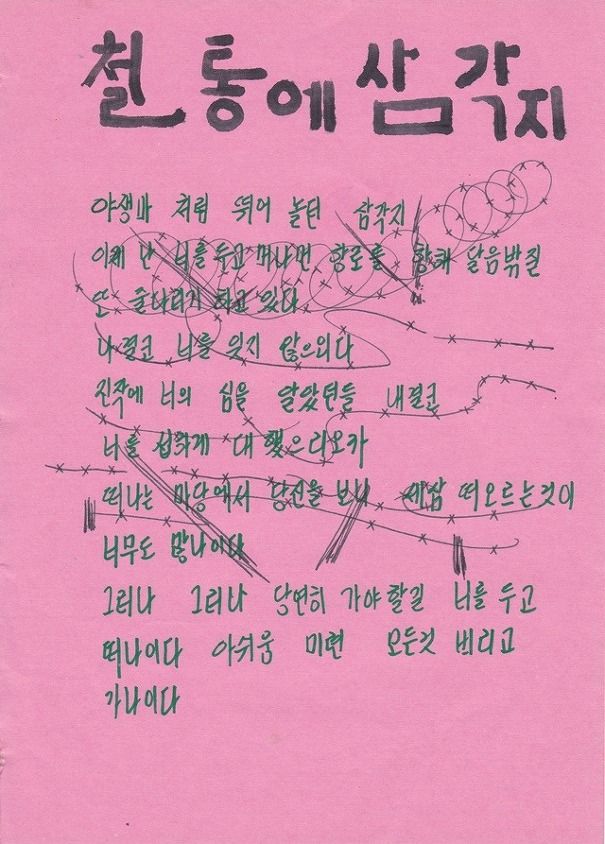 철통에 삼각지
야생마 처럼 뛰어 놀던 삼각지
이제 난 너를 두고 머나먼 항로를 향해 발음밖질
또 줄다리기 하고 있다
나 결코 너를 잊지 않으외다
진작에 너의 심을 알았던들 내결코
너를 섭하게 대했으리오카
떠나는 마당에서 당신을 보니 세삼 떠오르는것이
너무도 많나이다
그러나 그러나 당연히 가야할길 너를 두고
떠나이다 아쉬움 미련 모든것 버리고
가나이다